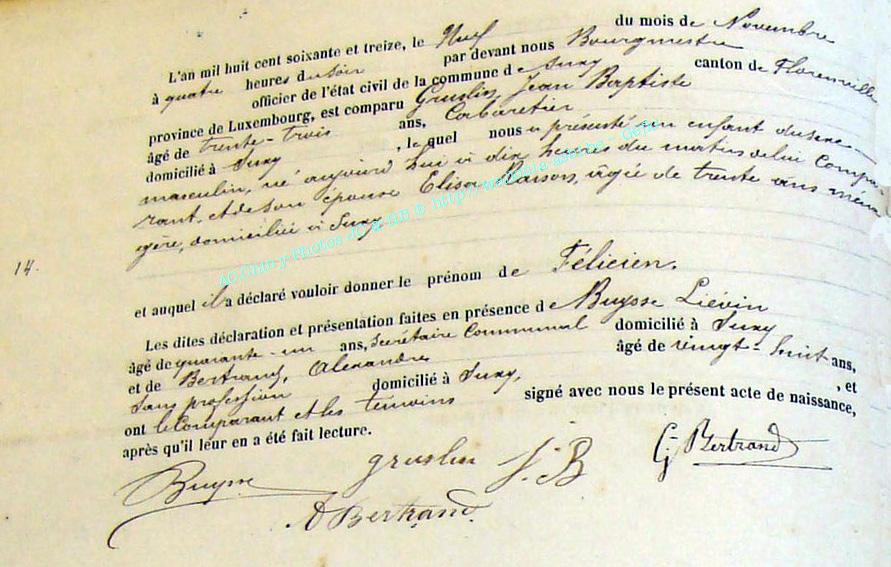 L'an mil huit cent soixante et treize, le Neuf du mois de Novembre
à quatre heures du soir par devant nous Bourgmestre
officier de l'état civil de la commune de Suxy canton de Florenville
province de Luxembourg, est comparu Gruslin, Jean Baptiste
âgé de trente-trois ans, Cabaretier
domicilié à Suxy, lequel nous a présenté un enfant du sexe
masculin, né aujourd'hui à dix heures du matin de lui Compa-
rant, et de son épouse Elisa Maison, âgée de trente ans ména
gère, domiciliée à Suxy
14.
et auquel il a déclaré vouloir donner le prénom de Félicien.
Les dites déclaration et présentation faites en présence de Buysse Liévin
âgé de quarante-un ans, secrétaire Communal domicilié à Suxy
et de Bertrand, Alexandre âgé de vingt-huit ans,
sans profession domicilié à Suxy, , et
ont le Comparant et les témoins signé avec nous le présent acte de naissance,
après qu'il leur en a été fait lecture.
Buysse gruslin J. B G. Bertrand
A Bertrand.